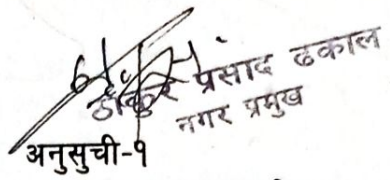 ठाकुर प्रसाद ढकाल
नगर प्रमुख
अनुसुची-१